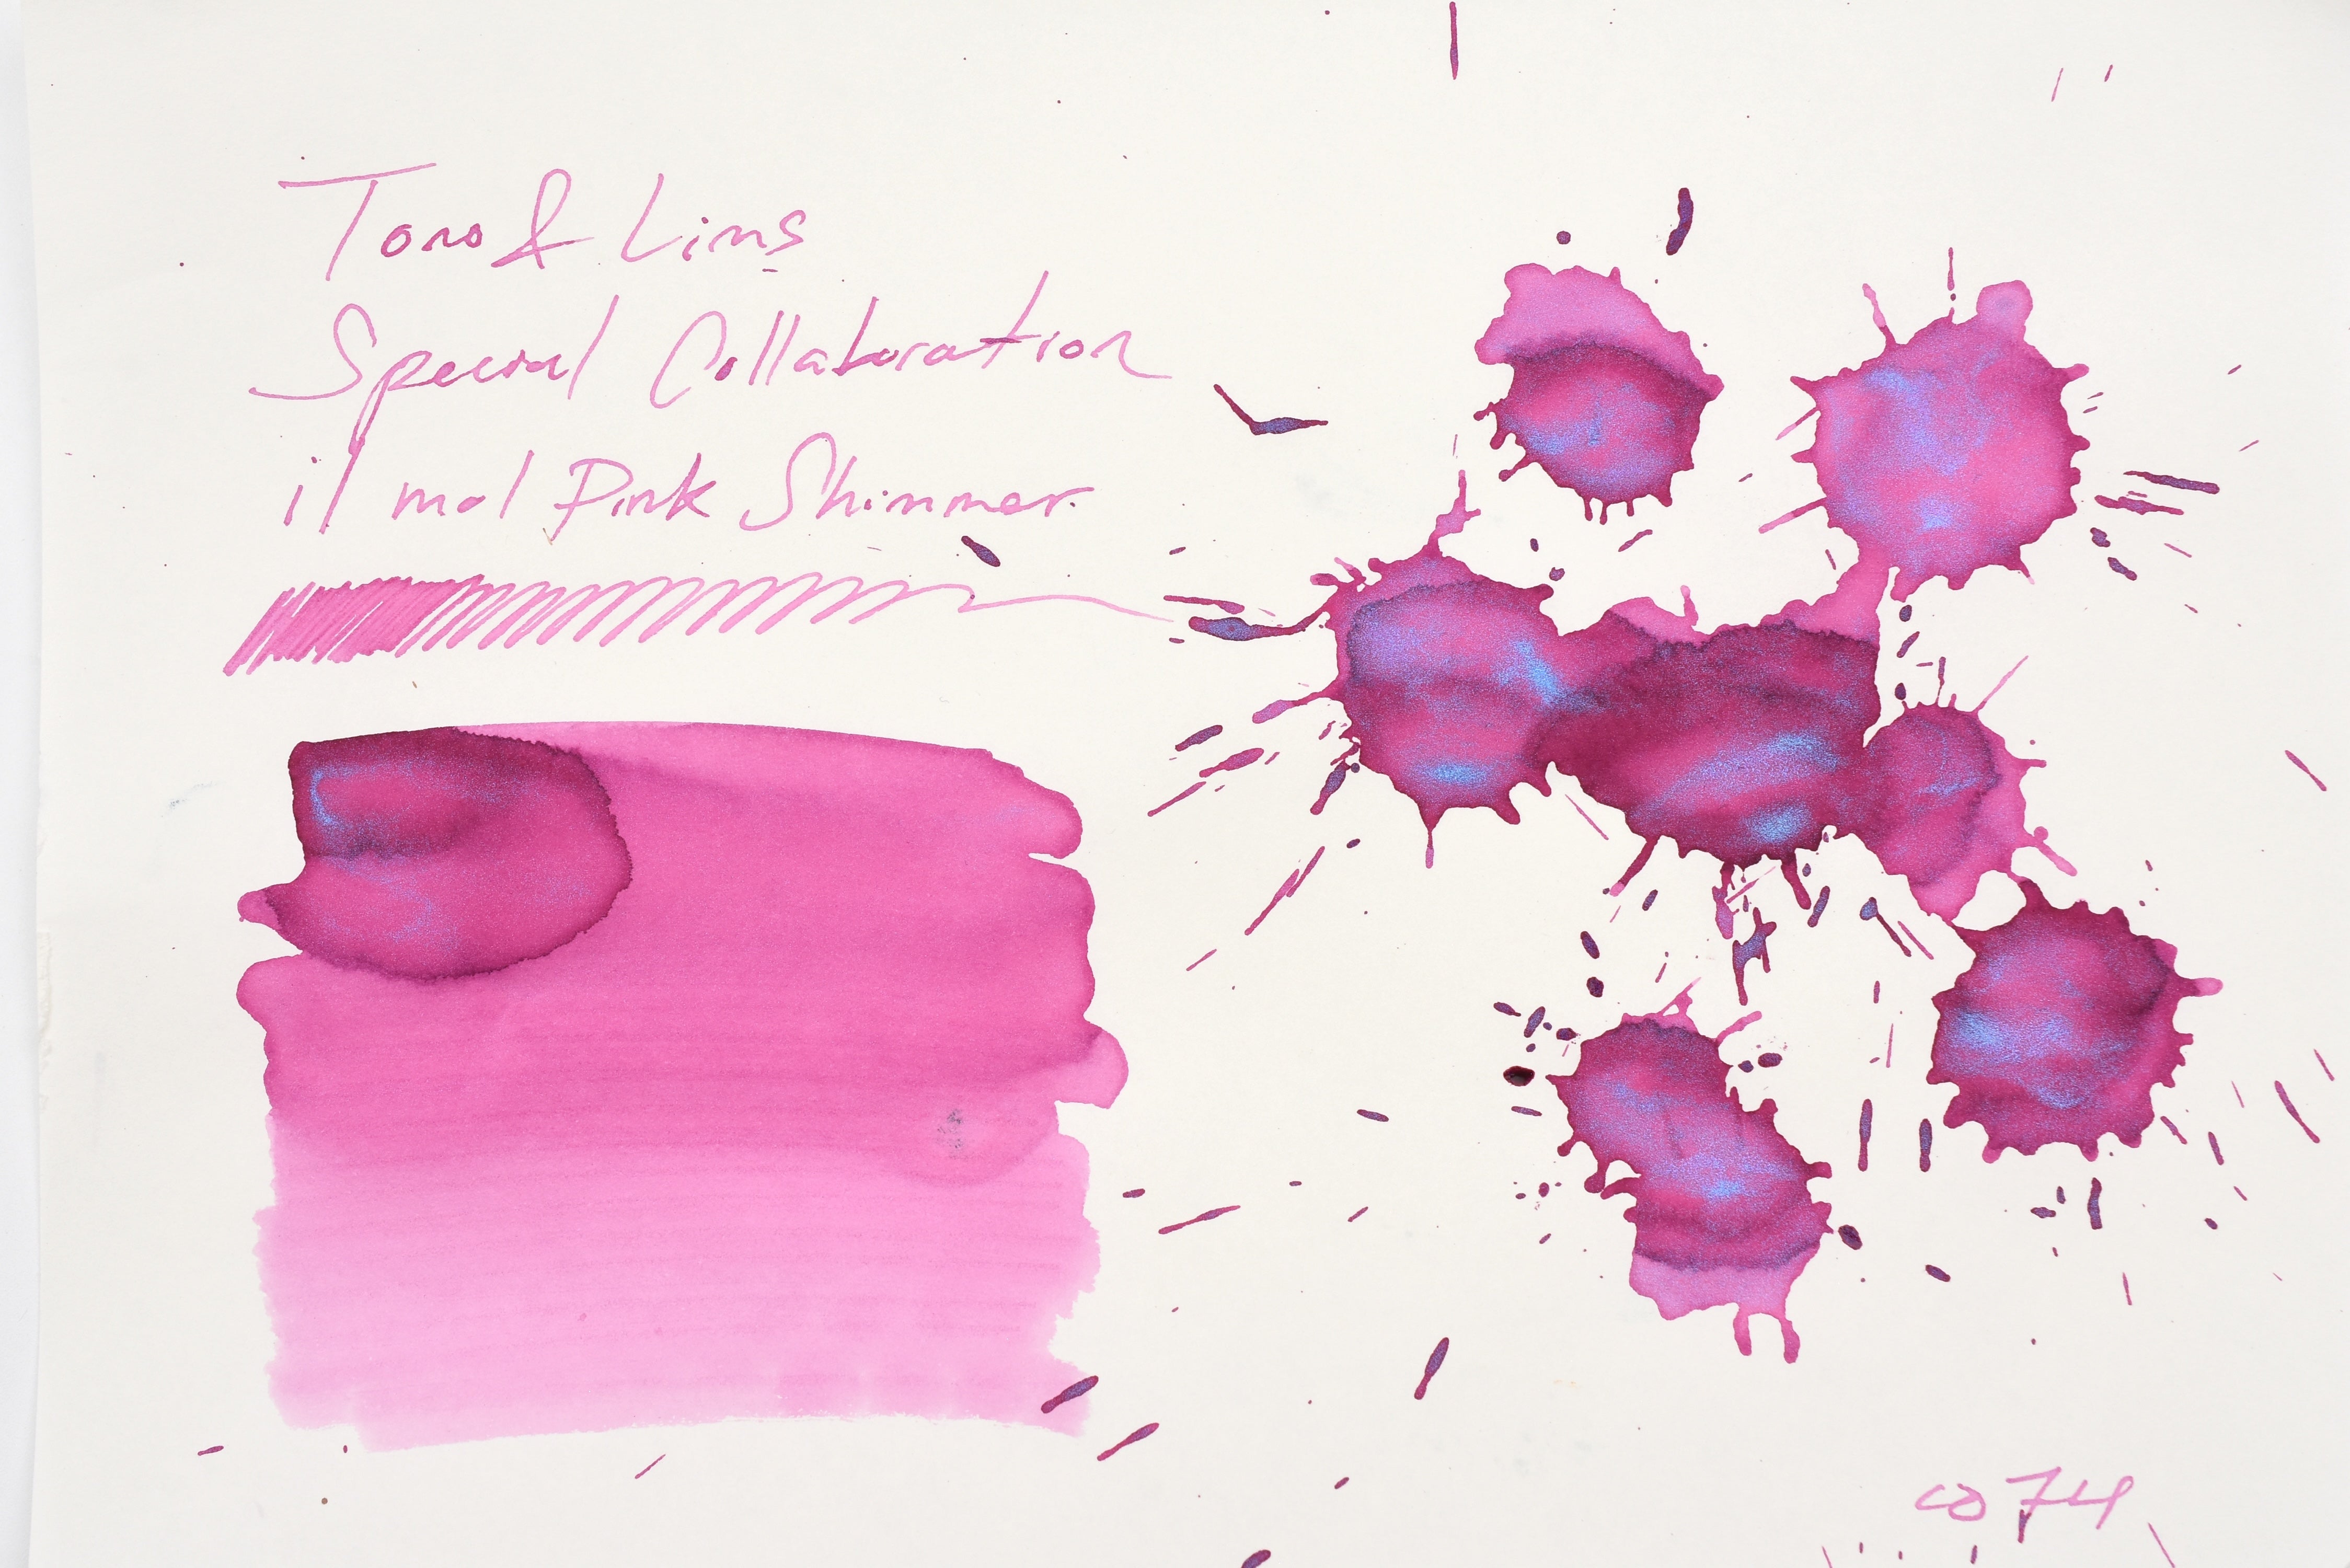 Tono & Lims
Special Collaboration
il mol Pink Shimmer
co 74